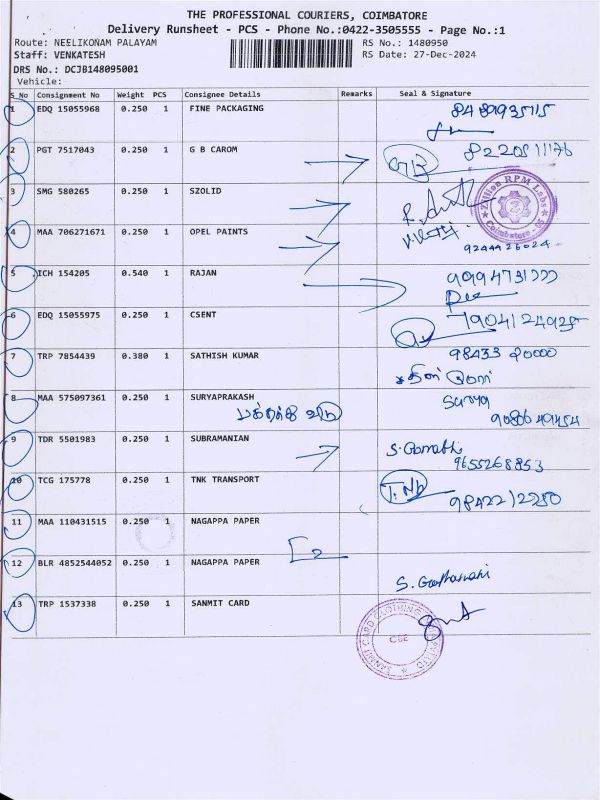 THE PROFESSIONAL COURIERS, COIMBATORE
Delivery Runsheet - PCS - Phone No.:0422-3505555 - Page No.:1
Route: NEELIKONAM PALAYAM RS No.: 1480950
Staff: VENKATESH RS Date: 27-Dec-2024
DRS No.: DCJB148095001
Vehicle:
S_No Consignment No Weight PCS Consignee Details Remarks Seal & Signature
1 EDQ 15055968 0.250 1 FINE PACKAGING
2 PGT 7517043 0.250 1 G B CAROM GB
3 SMG 580265 0.250 1 SZOLID
Zillion RPM Labs
Coimbatore
4 MAA 706271671 0.250 1 OPEL PAINTS
9244426024
5 ICH 154205 0.540 1 RAJAN
6 EDQ 15055975 0.250 1 CSENT
7 TRP 7854439 0.380 1 SATHISH KUMAR 98433 20000
8 MAA 575097361 0.250 1 SURYAPRAKASH Surya
பக்கத்து வீடு
9 TDR 5501983 0.250 1 SUBRAMANIAN S. Gomathi
9655268853
10 TCG 175778 0.250 1 TNK TRANSPORT
98422 12250
11 MAA 110431515 0.250 1 NAGAPPA PAPER
12 BLR 4852544052 0.250 1 NAGAPPA PAPER
13 TRP 1537338 0.250 1 SANMIT CARD
SANMIT CARD CLOTHING
CBE